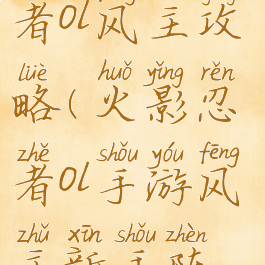 者ol风主攻
lüè huǒ yǐng rěn
略(火影忍
zhě shǒu yóu fēng
者ol手游风
zhǔ xīn shǒu zhèn
主新手阵